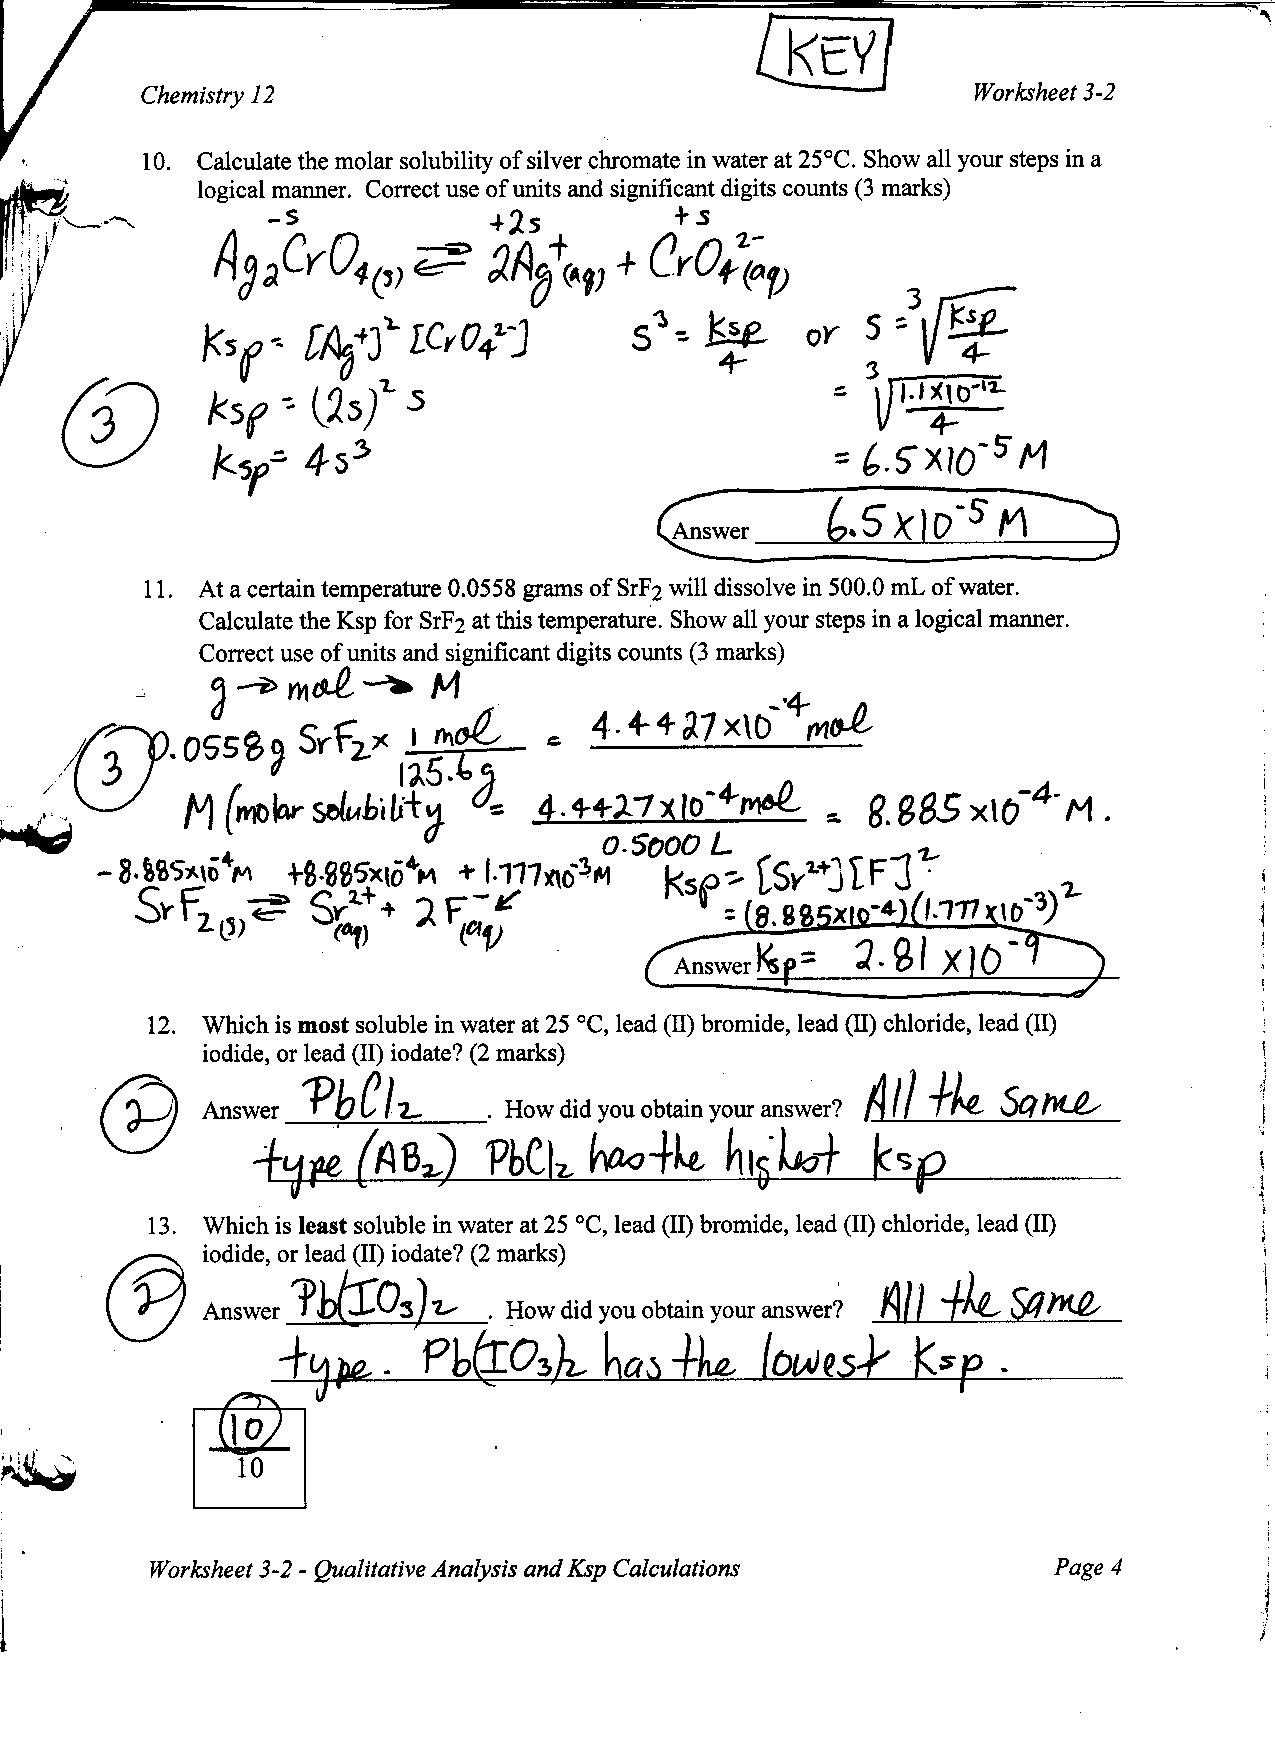 KEY
Chemistry 12 Worksheet 3-2
10. Calculate the molar solubility of silver chromate in water at 25°C. Show all your steps in a
logical manner. Correct use of units and significant digits counts (3 marks)
-s +2s +s
Ag₂CrO₄(s) ⇌ 2Ag⁺(aq) + CrO₄²⁻(aq)
Ksp = [Ag⁺]² [CrO₄²⁻] S³ = Ksp/4 or S = ³√(Ksp/4)
3 Ksp = (2s)² s = ³√(1.1x10⁻¹²/4)
Ksp = 4s³ = 6.5 x10⁻⁵ M
Answer 6.5 x10⁻⁵ M
11. At a certain temperature 0.0558 grams of SrF₂ will dissolve in 500.0 mL of water.
Calculate the Ksp for SrF₂ at this temperature. Show all your steps in a logical manner.
Correct use of units and significant digits counts (3 marks)
g → mol → M
3 0.0558g SrF₂ x 1 mol/125.6g = 4.4427x10⁻⁴ mol
M (molar solubility) = 4.4427x10⁻⁴ mol/0.5000 L = 8.885 x10⁻⁴ M.
-8.885x10⁻⁴M +8.885x10⁻⁴M +1.777x10⁻³M Ksp = [Sr²⁺][F⁻]²
SrF₂(s) ⇌ Sr²⁺(aq) + 2F⁻(aq) = (8.885x10⁻⁴)(1.777x10⁻³)²
Answer Ksp = 2.81 x10⁻⁹
12. Which is most soluble in water at 25 °C, lead (II) bromide, lead (II) chloride, lead (II)
iodide, or lead (II) iodate? (2 marks)
2 Answer PbCl₂ . How did you obtain your answer? All the same
type (AB₂) PbCl₂ has the highest Ksp
13. Which is least soluble in water at 25 °C, lead (II) bromide, lead (II) chloride, lead (II)
iodide, or lead (II) iodate? (2 marks)
2 Answer Pb(IO₃)₂ . How did you obtain your answer? All the same
type. Pb(IO₃)₂ has the lowest Ksp.
10
10
Worksheet 3-2 - Qualitative Analysis and Ksp Calculations Page 4